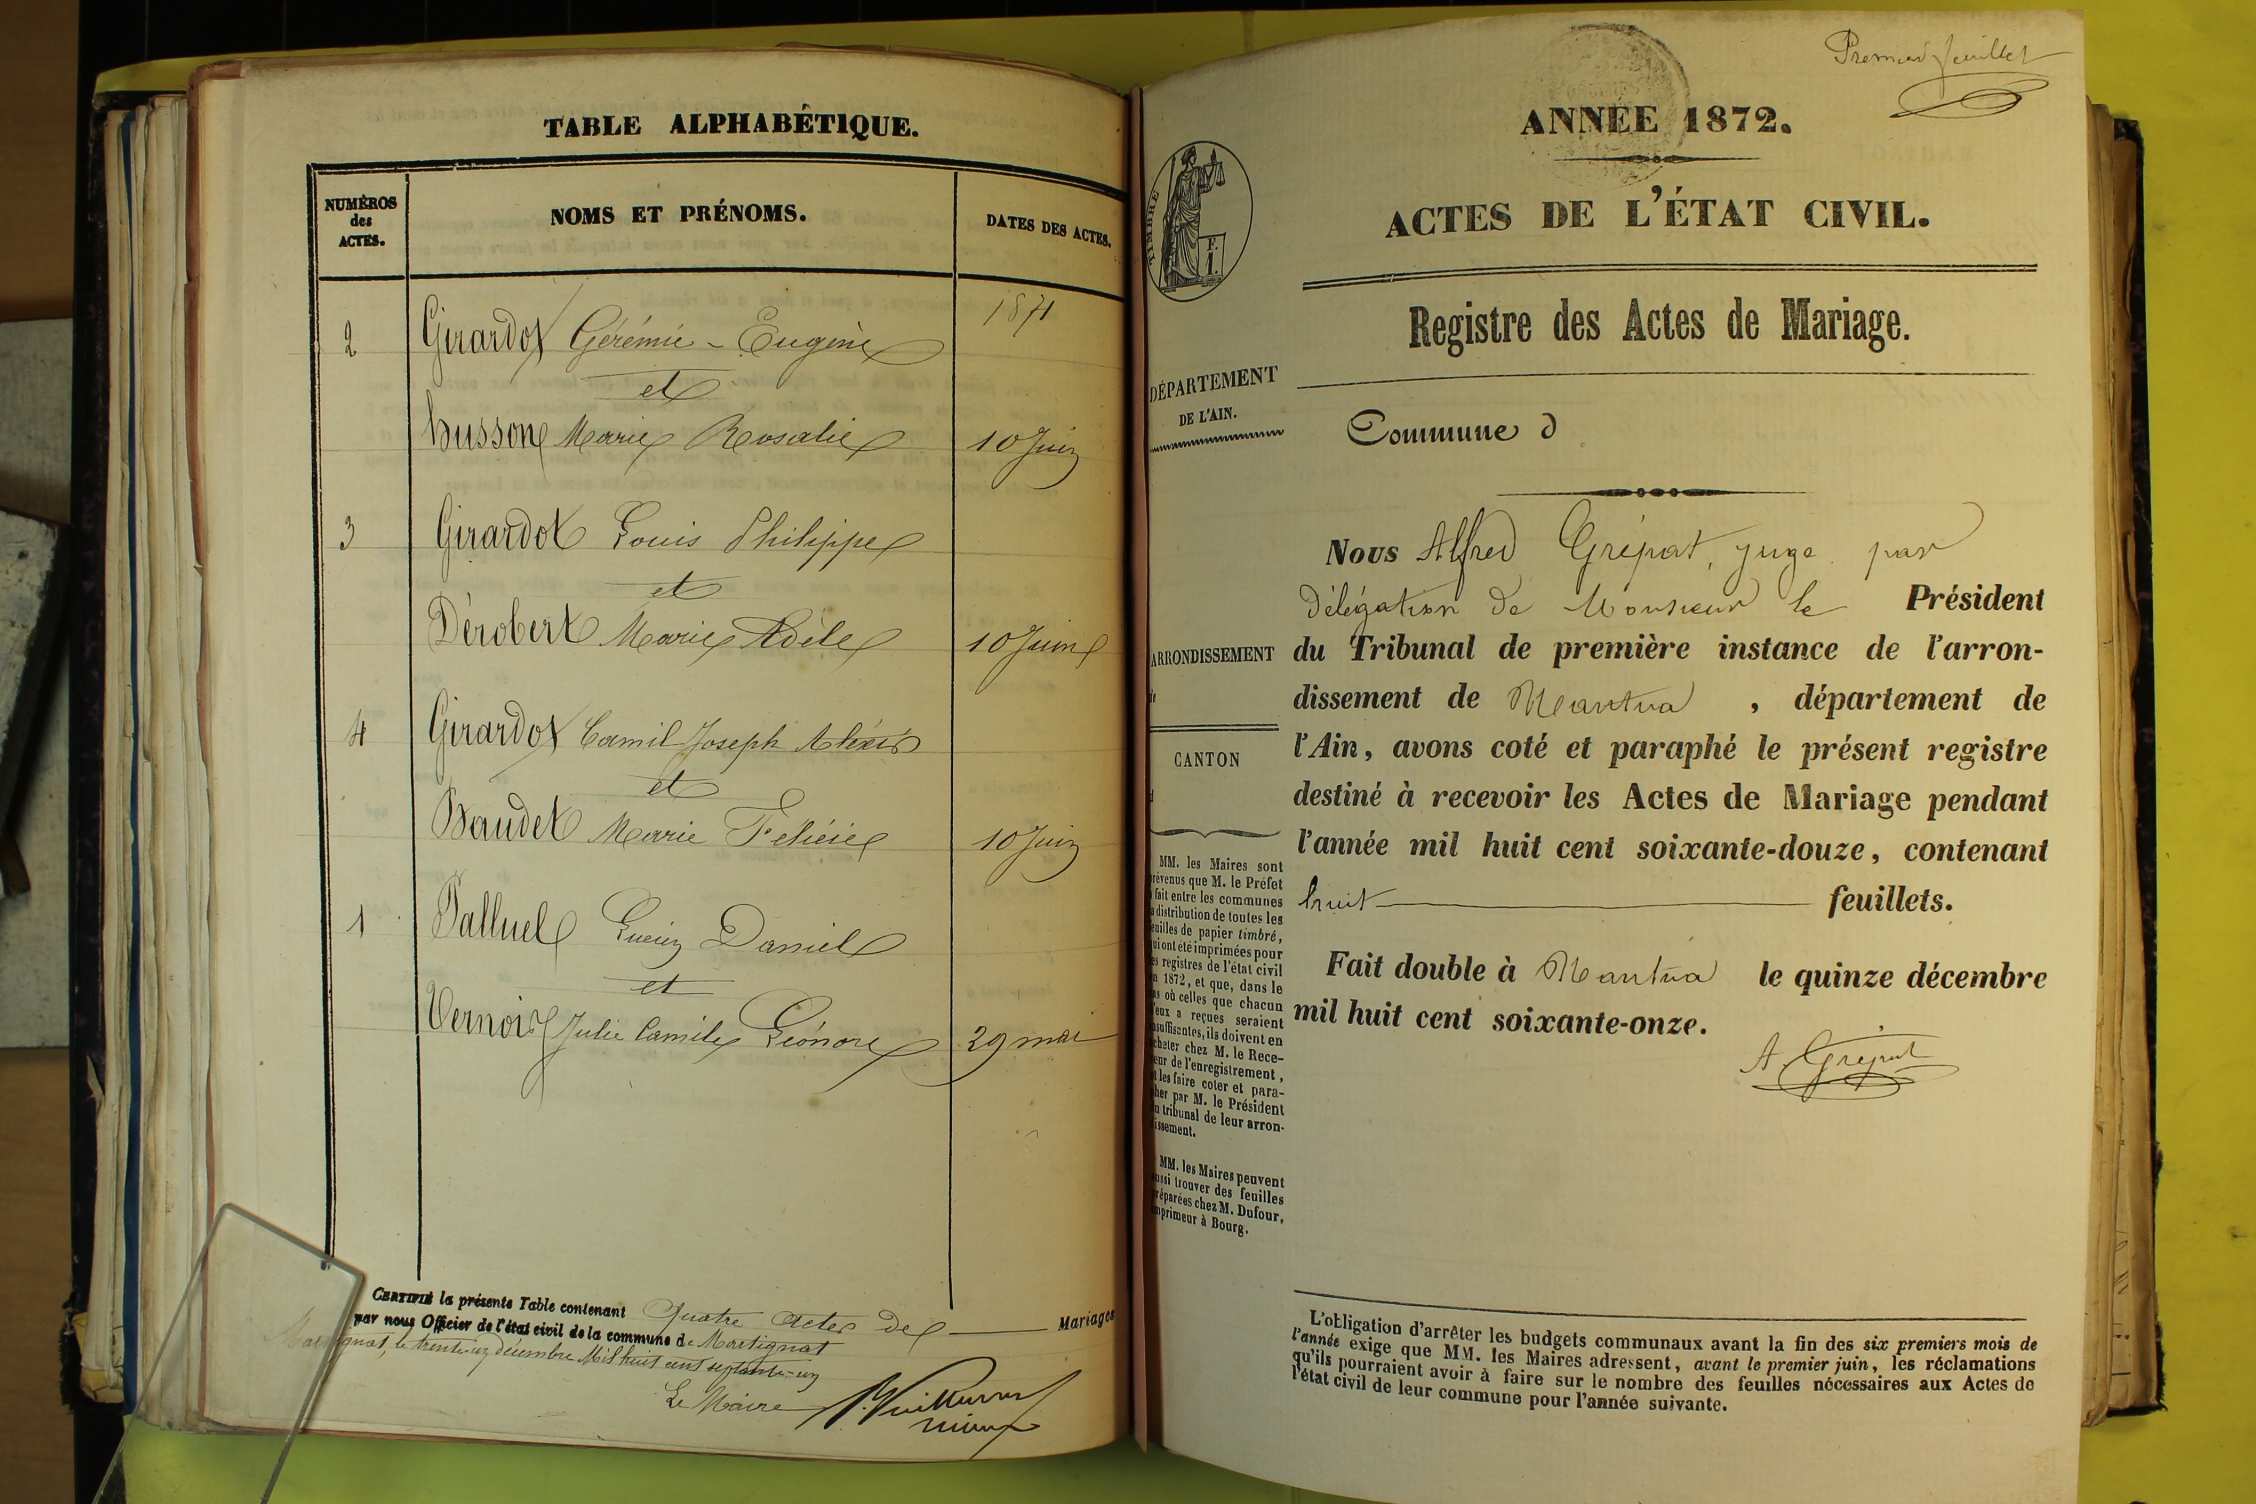 TABLE ALPHABÉTIQUE.
NUMÉROS
des
ACTES.
NOMS ET PRÉNOMS.
DATES DES ACTES.
1871
2 Girardot Gérémie - Eugène
et
Husson Marie Rosalie 10 Juin
3 Girardot Louis Philippe
et
Dérobert Marie Adèle 10 Juin
4 Girardot Camil Joseph Alexis
et
Baudet Marie Féliéie 10 Juin
1 Palluel Lucien Daniel
et
Vernoix Julie Camile Léonore 29 mai
CERTIFIÉ la présente Table contenant Quatre actes de Mariages
par nous Officier de l'état civil de la commune de Martignat
Martignat, le trente-un décembre Mil huit cent septante-un
Le Maire
Premier feuillet
ANNÉE 1872.
ACTES DE L'ÉTAT CIVIL.
TIMBRE
F.
1.
Registre des Actes de Mariage.
DÉPARTEMENT
DE L'AIN.
Commune d
Nous Alfred Grépat, juge par
délégation de Monsieur le Président
du Tribunal de première instance de l'arron-
dissement de Nantua , département de
l'Ain, avons coté et paraphé le présent registre
destiné à recevoir les Actes de Mariage pendant
l'année mil huit cent soixante-douze, contenant
huit feuillets.
Fait double à Nantua le quinze décembre
mil huit cent soixante-onze.
A. Grépat
ARRONDISSEMENT
CANTON
MM. les Maires sont
prévenus que M. le Préfet
a fait entre les communes
la distribution de toutes les
feuilles de papier timbré,
qui ont été imprimées pour
les registres de l'état civil
en 1872, et que, dans le
cas où celles que chacun
d'eux a reçues seraient
insuffisantes, ils doivent en
acheter chez M. le Rece-
veur de l'enregistrement,
et les faire coter et para-
pher par M. le Président
du tribunal de leur arron-
dissement.
MM. les Maires peuvent
aussi trouver des feuilles
préparées chez M. Dufour,
imprimeur à Bourg.
L'obligation d'arrêter les budgets communaux avant la fin des six premiers mois de
l'année exige que MM. les Maires adressent, avant le premier juin, les réclamations
qu'ils pourraient avoir à faire sur le nombre des feuilles nécessaires aux Actes de
l'état civil de leur commune pour l'année suivante.